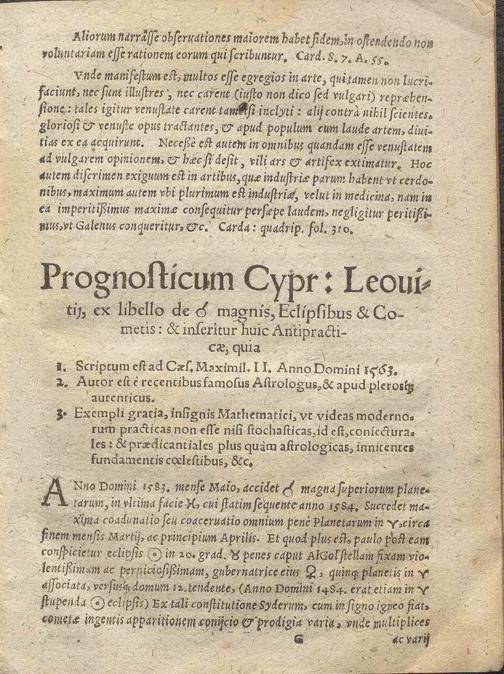 Aliorum narrâsse obseruationes maiorem habet fidem, in ostendendo non
voluntariam esse rationem eorum qui scribuntur. Card. S. 7. A. 55.
Vnde manifestum est, multos esse egregios in arte, qui tamen non lucri-
faciunt, nec sunt illustres, nec carent (iusto non dico sed vulgari) repræhen-
sione: tales igitur venustate carent tametsi inclyti: alij contrà nihil scientes,
gloriosi & venustè opus tractantes, & apud populum cum laude artem, diui-
tias ex ea acquirunt. Necessè est autem in omnibus quandam esse venustatem
ad vulgarem opinionem, & hæc si desit, vili ars & artifex extimatur. Hoc
autem discrimen exiguum est in artibus, quæ industriæ parum habent vt cerdo-
nibus, maximum autem vbi plurimum est industriæ, velut in medicina, nam in
ea imperitißimus maximæ consequitur persæpe laudem, negligitur peritißi-
mus, vt Galenus conqueritur, &c. Carda: quadrip. fol. 310.
Prognosticum Cypr: Leoui-
tij, ex libello de ☌ magnis, Eclipsibus & Co-
metis: & inseritur huic Antipracti-
cæ, quia
1. Scriptum est ad Cæs. Maximil. II. Anno Domini 1563.
2. Autor est è recentibus famosus Astrologus, & apud plerosq;
autenticus.
3. Exempli gratia, insignis Mathematici, vt videas moderno-
rum practicas non esse nisi stochasticas, id est, coniectura-
les: & prædicantiales plus quàm astrologicas, innitentes
fundamentis cœlestibus, &c.
ANno Domini 1583. mense Maio, accidet ☌ magna superiorum plane-
tarum, in vltima facie ♓, cui statim sequente anno 1584. Succedet ma-
xima coadunatio seu coaceruatio omnium penè Planetarum in ♈, circa
finem mensis Martij, ac principium Aprilis. Et quod plus est, paulo post eam
conspicietur eclipsis ☉ in 20. grad. ♉ penes caput Algol stellam fixam vio-
lentißimam ac perniciosißimam, gubernatrice eius ♀, quinq; planetis in ♈
associata, versusq; domum 12. tendente, (Anno Domini 1484. erat etiam in ♈
stupenda ☉ eclipsis) Ex tali constitutione Syderum, cum in signo igneo fiat,
cometæ ingentis apparitionem conijcio & prodigia varia, vnde multiplices
G
ac varij